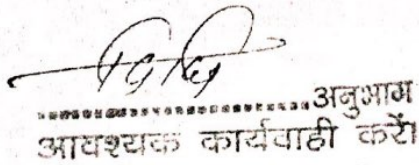 विधि
....................... अनुभाग
आवश्यक कार्यवाही करें।